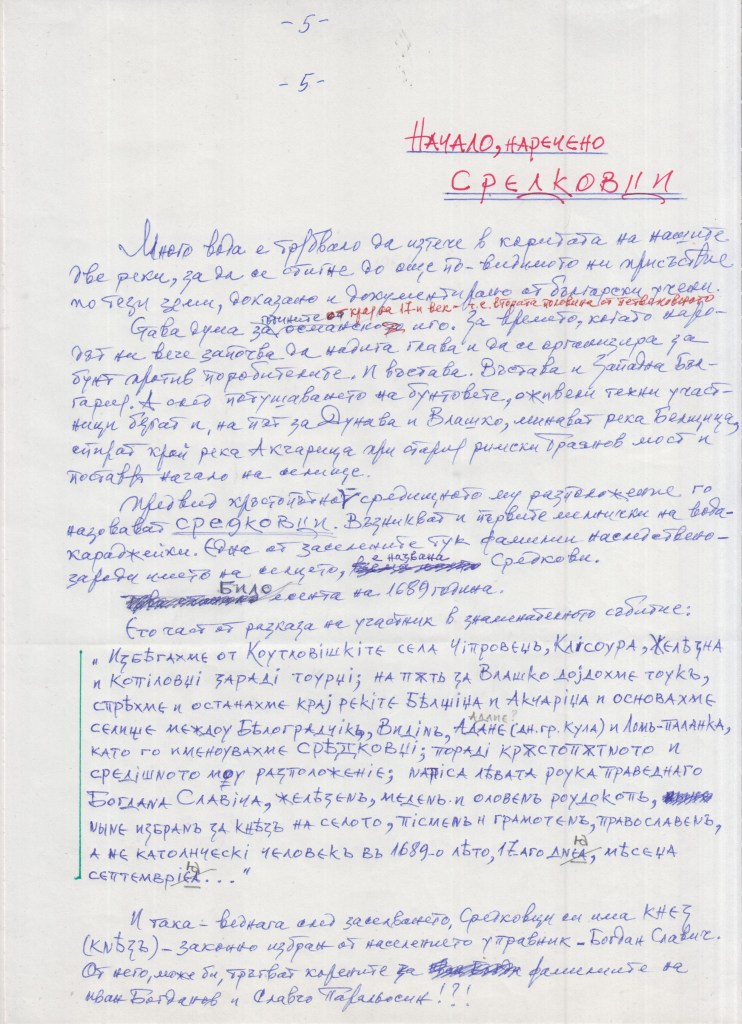 - 5 -
- 5 -
НАЧАЛО, НАРЕЧЕНО
СРЕДКОВЦИ
Много вода е трябвало да изтече в коритата на нашите
две реки, за да се стигне до още по-видимото ни присъствие
по тези земи, доказано и документирано от български учени.
от края на 17-и век - т.е. втората половина от петвековното
Става дума за османско иго. За времето, когато наро-
дът ни вече започва да надига глава и да се организира за
бунт против поробителите. И въстава. Въстава и Западна Бъл-
гария. А след потушаването на бунтовете, оживели техни участ-
ници бягат и, на път за Дунава и Влашко, минават река Белщица,
спират край река Акчарица при стария римски Траянов мост и
поставят начало на селище.
Предвид кръстопътното средищното му разположение го
назовават СРЕДКОВЦИ. Възникват и първите мелнички на вода-
караджейки. Една от заселените тук фамилии наследствено-
заради името на селцето, е названа Средкови.
Било есента на 1689 година.
Ето част от разказа на участник в знаменателното събитие:
„Избѣгахме от Коутловішкіте села Чіпровецъ, Клісоура, Желѣзна
и Копіловці заради тоурці; на пѫть за Влашко дојдохме тоукъ,
спрѣхме и останахме крај рекіте Бѣлщіна и Акчаріца и основахме
Адлие?
селище междоу Бѣлоградчікъ, Видінъ, Адане (дн. гр. Кула) и Ломъ-Паланка,
като го именоувахме Срѣдковці; пораді крѫстопѫтното и
средішното моу разположеніе; напіса лѣвата роука праведнаго
Богдана Славіча, желѣзенъ, меденъ и оловенъ роудокопъ,
ныне избранъ за кнѣзъ на селото, пісменъ и грамотенъ, православенъ,
а не католическі человекъ въ 1689-о лѣто, 17-аго дня, мѣсеца
септемврія..."
И така - веднага след заселването, Средковци си има КНЕЗ
(КНѢЗЪ) - законно избран от населението управник - Богдан Славич.
От него, може би, тръгват корените за фамилиите на
Иван Богданов и Славчо Паральосин!?!